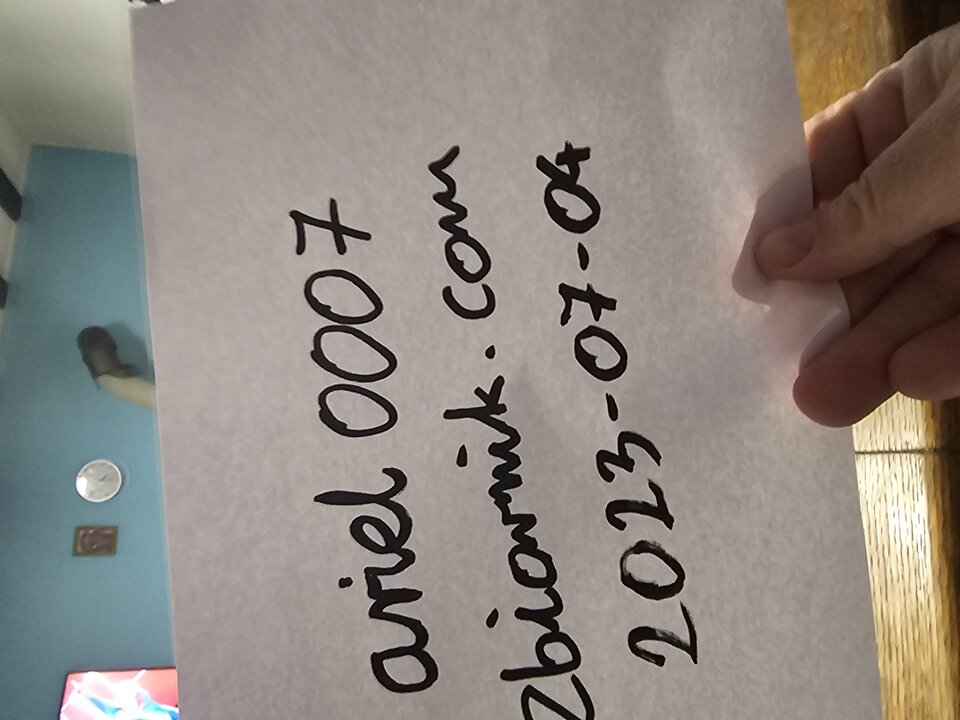 ariel 0007
zbiornik.com
2023-07-04